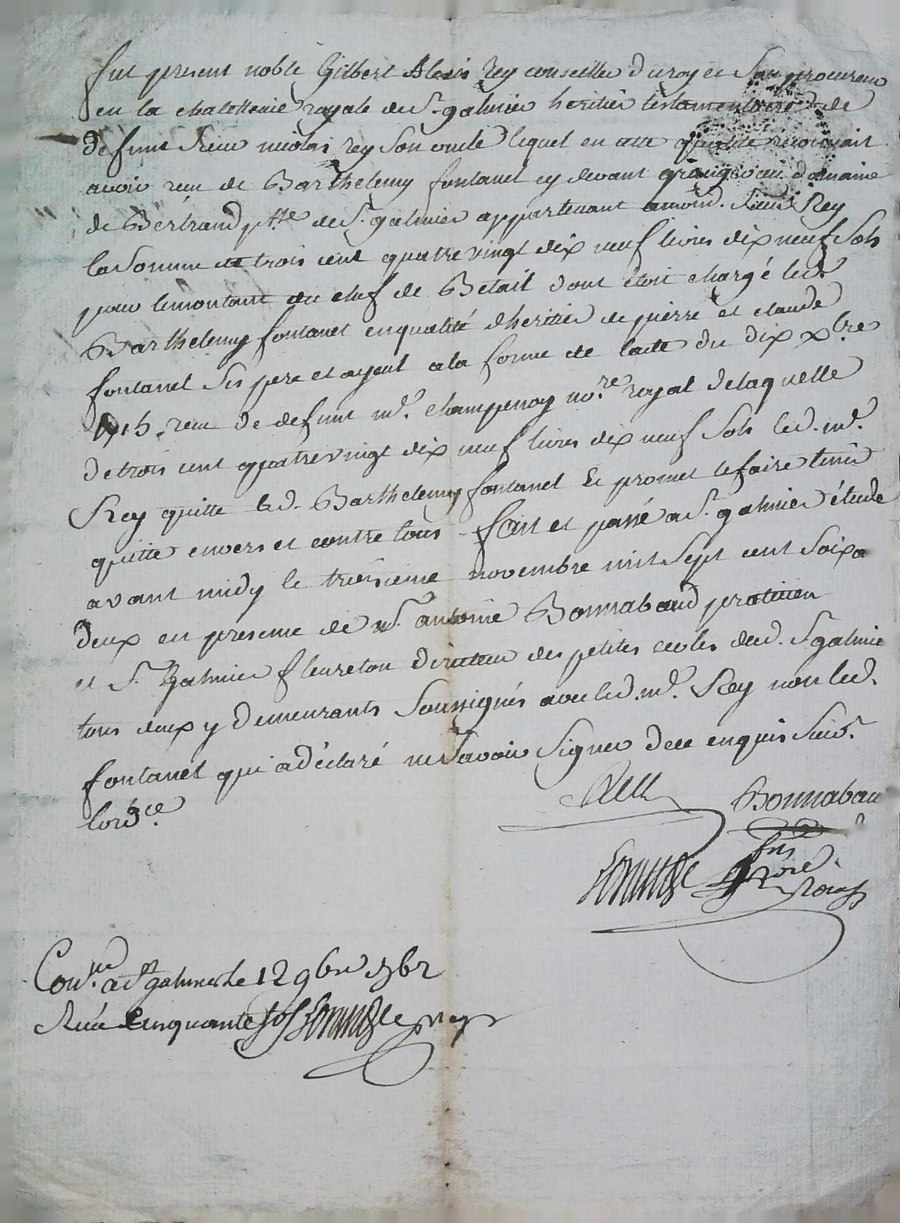 fut present noble Gilbert Alexis Rey conseiller du roy et son procureur
en la chatellenie royale de St galmier heritier testamentaire de
defunt Sieur nicolas rey son oncle lequel en cette qualité reconnait
avoir reçu de Barthelemy fontanel cy devant granger au domaine
de Bertrand psse de St galmier appartenant amond. Sieur Rey
la Somme de trois cent quatre vingt dix neuf livres dix neuf Sols
pour lemontant du chef de Bétail dont étoit chargé led.
Barthelemy fontanel enqualité dheritier de pierre et claude
fontanel Ses pere et ayeul ala forme de lacte du dix xbre
1715. reçu de defunt me. champenoy nore. royal delaquelle
detrois cent quatre vingt dix neuf livres dix neuf Sols led. md.
Rey quitte led. Barthelemy fontanel Et promet lefaire tenir
quitte envers et contre tous - fait et passé a St. galmier étude
avant midy le troisieme novembre mil Sept cent Soixa
deux en presence de Sr. antoine Bonnabaud praticien
et Sr. Galmier fleureton directeur des petites ecoles dud. St galmier
tous deux y demeurants Soussignés avec led. md. Rey non led.
fontanel qui adéclaré ne Savoir Signer de ce enquis Suivt.
lordce
Rey
Bonnabau
Conlle. a St galmier le 12 9bre 1762
Reçu Cinquante Sols